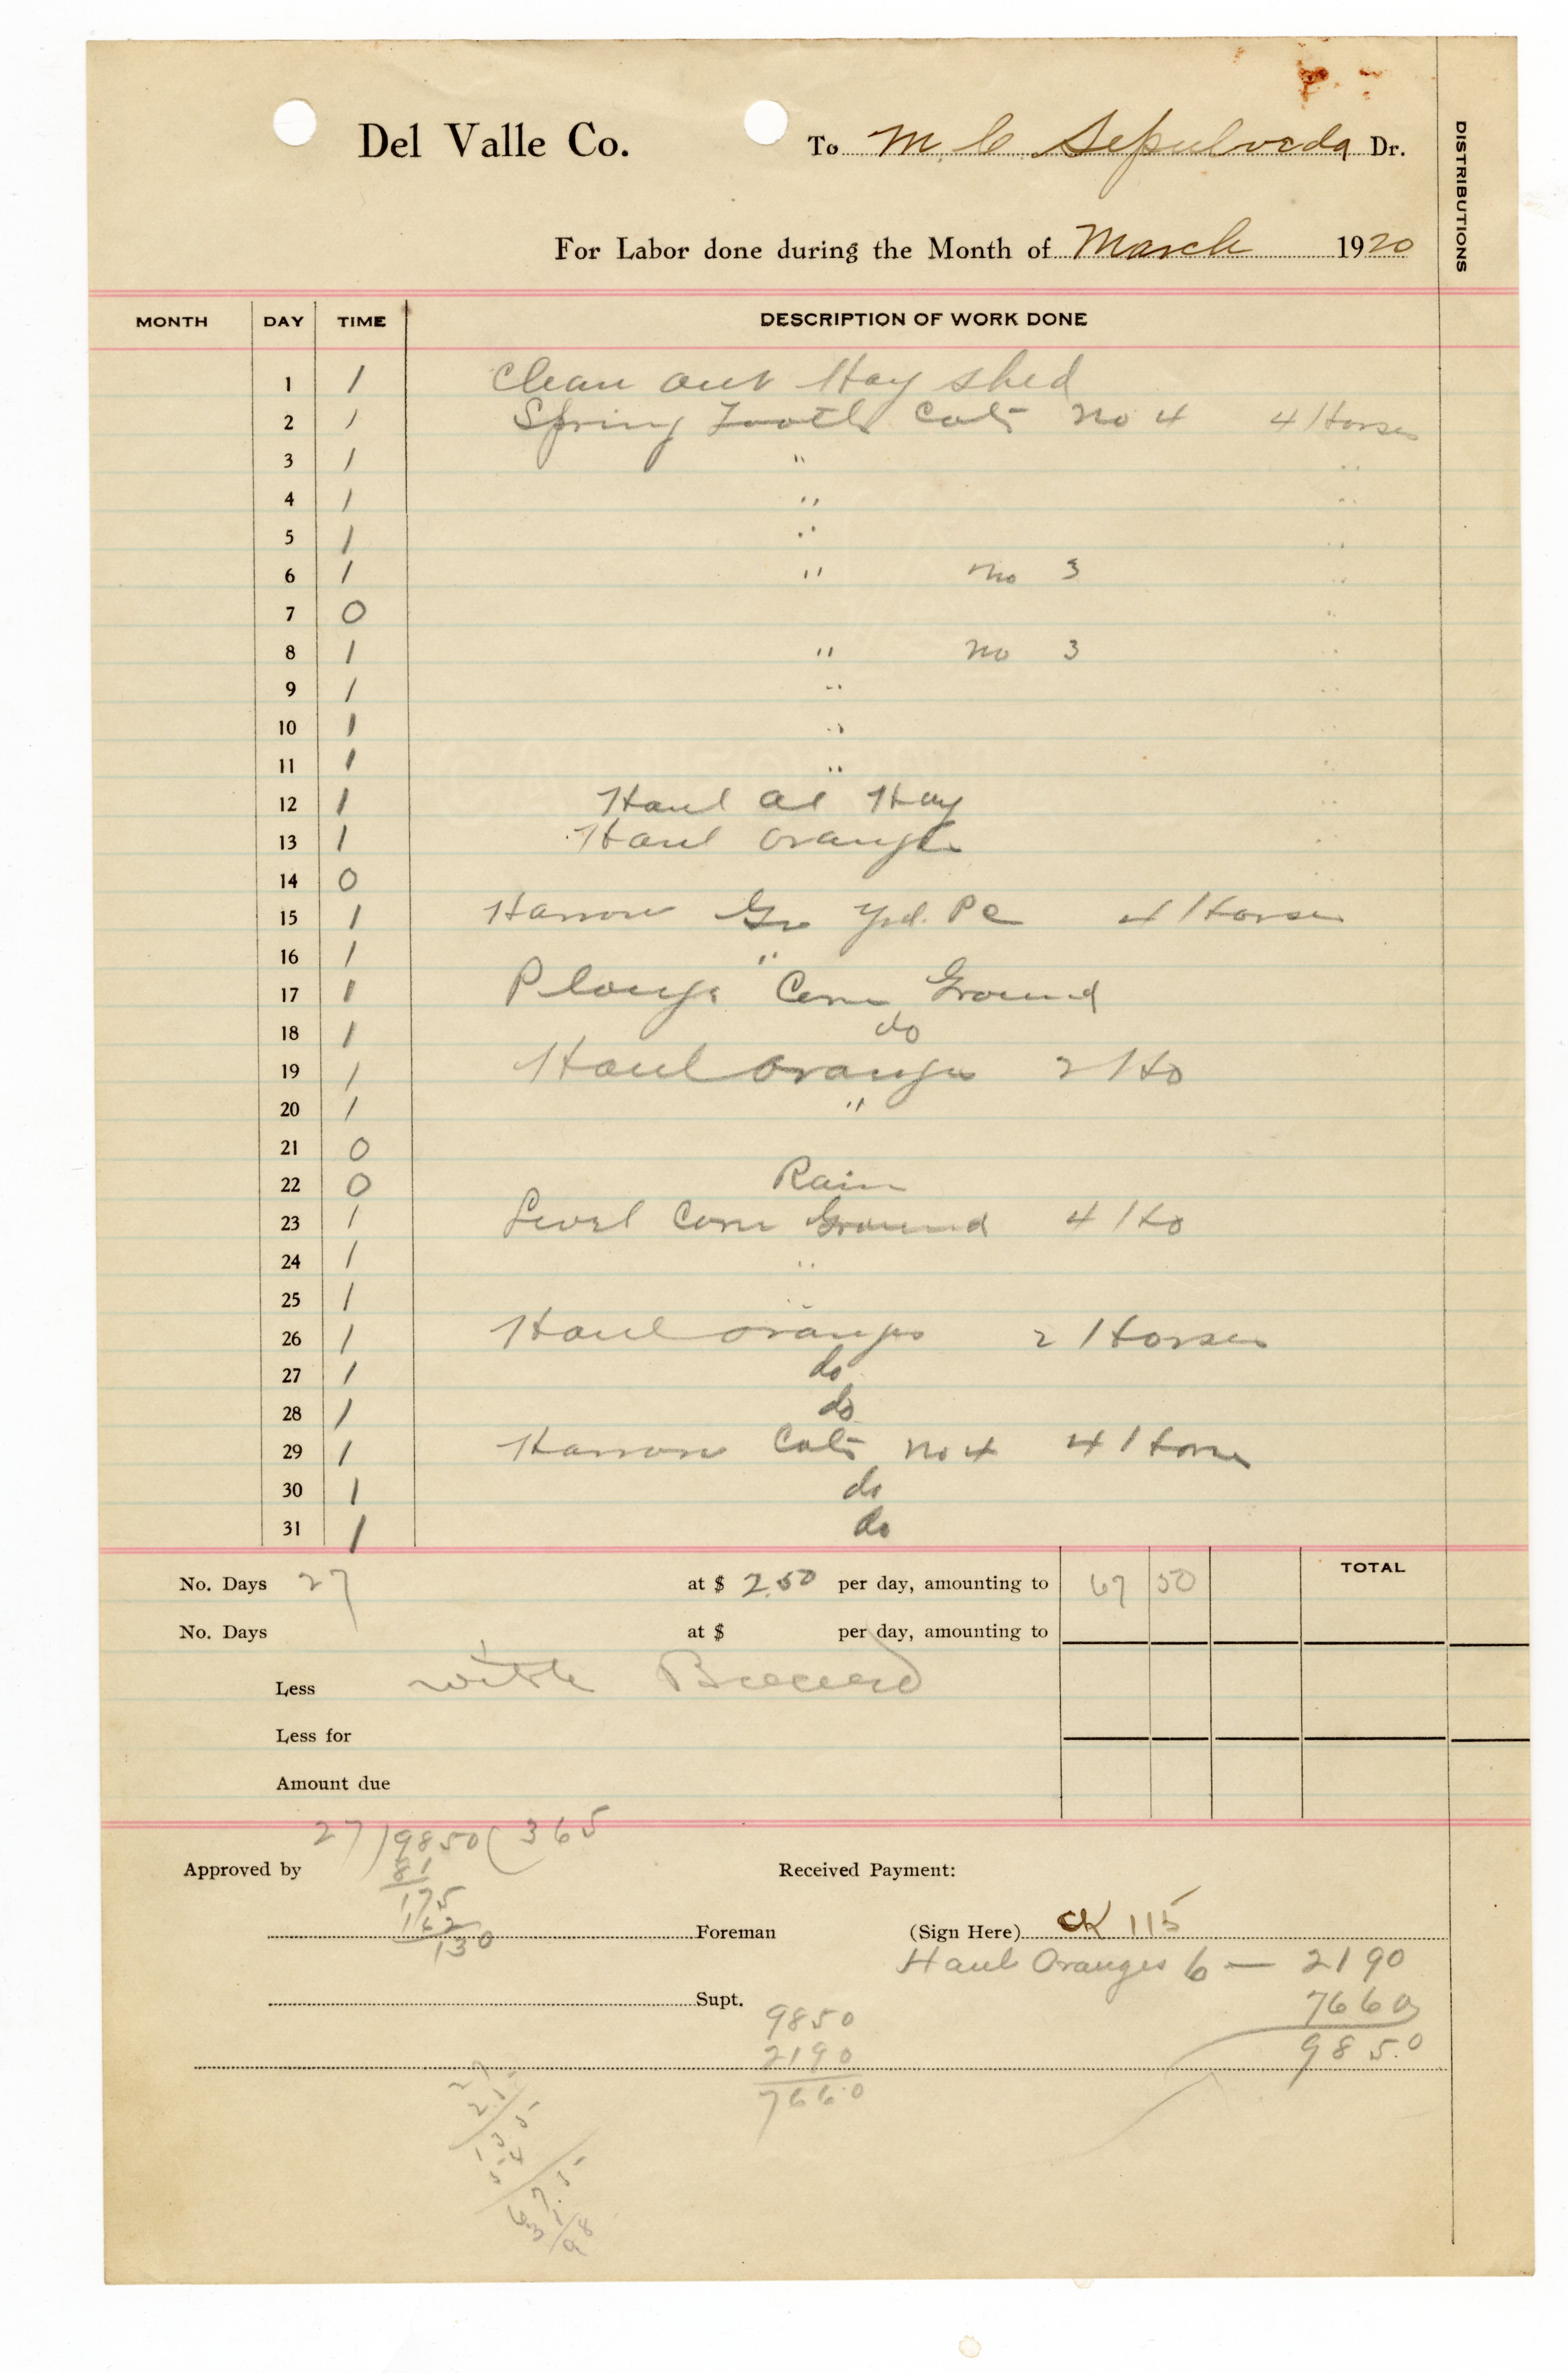 Del Valle Co. To M. C. Sepulveda Dr.
For Labor done during the Month of March 1920
DISTRIBUTIONS
MONTH DAY TIME DESCRIPTION OF WORK DONE
1 1 Clean out Hay shed
2 1 Spring Tooth Cots No 4 4 Horses
3 1 " "
4 1 " "
5 1 " "
6 1 " No 3 "
7 0 "
8 1 " No 3 "
9 1 " "
10 1 " "
11 1 " "
12 1 Haul Hay "
13 1 Haul oranges "
14 0 "
15 1 Harrow Gr Yrd. Pc 4 Horses
16 1 "
17 1 Plough Corn Ground
18 1 do
19 1 Haul oranges 2 Ho
20 1 "
21 0
22 0 Rain
23 1 Level Corn Ground 4 Ho
24 1 "
25 1 "
26 1 Haul oranges 2 Horses
27 1 do
28 1 do
29 1 Harrow Cots No 4 4 Horse
30 1 do
31 1 do
No. Days 27 at $ 2.50 per day, amounting to 67 50 TOTAL
No. Days at $ per day, amounting to
Less with
Less for
Amount due
27)9850(365
81
175
162
130
Approved by Received Payment:
Foreman (Sign Here) CK 115
Haul Oranges 6 — 2190
7660
9850
Supt.
9850
2190
7660
27
2.5
135
54
67.5
31
98